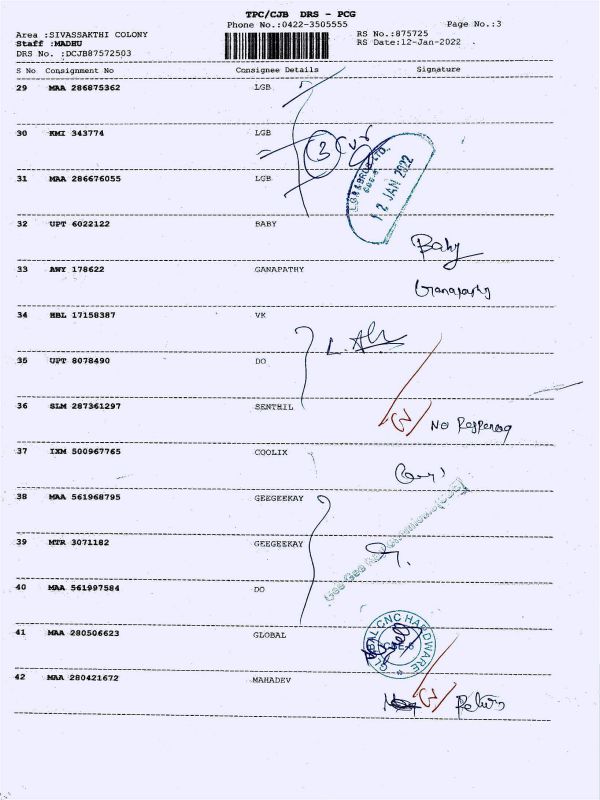 TPC/CJB DRS - PCG
Phone No.:0422-3505555
Page No.:3
Area :SIVASSAKTHI COLONY
RS No.:875725
Staff :MADHU
RS Date:12-Jan-2022
DRS No. :DCJB87572503
S No Consignment No Consignee Details Signature
29 MAA 286875362 LGB
30 KMI 343774 LGB
3
12 JAN 2022
31 MAA 286676055 LGB
32 UPT 6022122 BABY
Baby
33 AWY 178622 GANAPATHY
Ganapathy
34 HBL 17158387 VK
35 UPT 8078490 DO
36 SLM 287361297 SENTHIL
No
37 IXM 500967765 COOLIX
38 MAA 561968795 GEEGEEKAY
39 MTR 3071182 GEEGEEKAY
40 MAA 561997584 DO
41 MAA 280506623 GLOBAL
GLOBAL CNC HARDWARE
42 MAA 280421672 MAHADEV